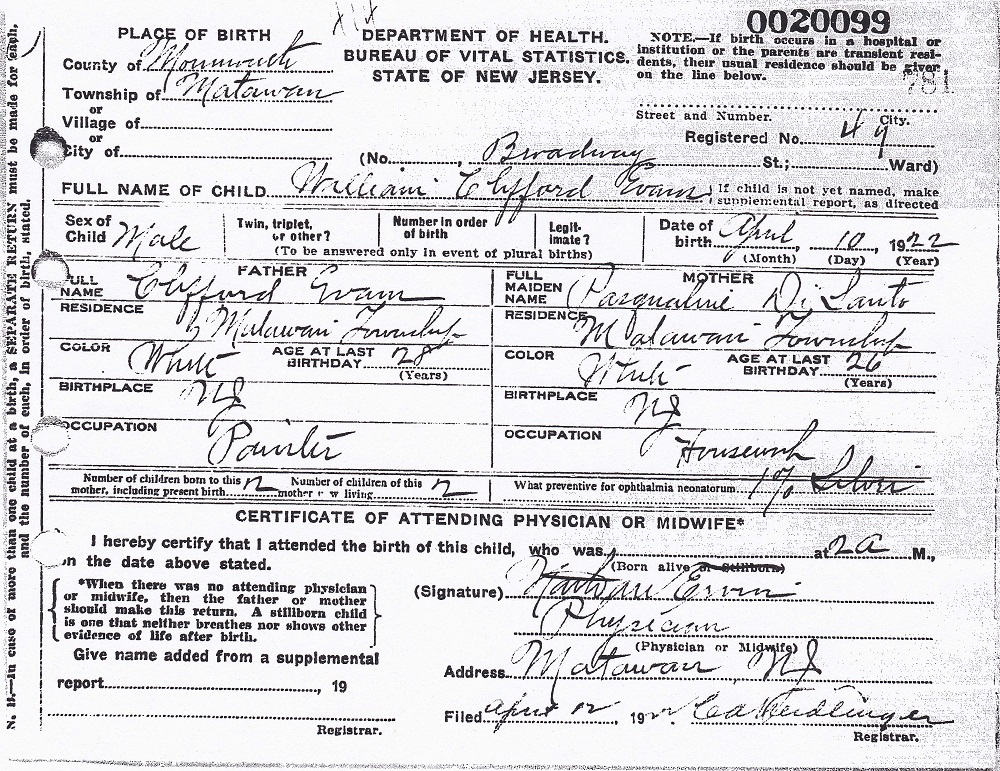 0020099
PLACE OF BIRTH
DEPARTMENT OF HEALTH.
BUREAU OF VITAL STATISTICS.
STATE OF NEW JERSEY.
NOTE.—If birth occurs in a hospital or
institution or the parents are transient resi-
dents, their usual residence should be given
on the line below.
781
County of Monmouth
Township of Matawan
or
Village of
or
City of
Street and Number. City.
Registered No. 49
(No. , Broadway St.; Ward)
FULL NAME OF CHILD William Clifford Evans
If child is not yet named, make
supplemental report, as directed
Sex of Child Male
Twin, triplet, or other?
Number in order of birth
Legit-imate?
(To be answered only in event of plural births)
Date of birth April, 10, 1922
(Month) (Day) (Year)
FATHER
FULL NAME Clifford Evans
RESIDENCE Matawan Township
COLOR White AGE AT LAST BIRTHDAY 28
(Years)
BIRTHPLACE NJ
OCCUPATION Painter
MOTHER
FULL MAIDEN NAME Pasqualine Di Santo
RESIDENCE Matawan Township
COLOR White AGE AT LAST BIRTHDAY 26
(Years)
BIRTHPLACE NJ
OCCUPATION Housework
Number of children born to this mother, including present birth 2
Number of children of this mother now living 2
What preventive for ophthalmia neonatorum 1% Silver
CERTIFICATE OF ATTENDING PHYSICIAN OR MIDWIFE*
I hereby certify that I attended the birth of this child, who was at 2 a M.,
(Born alive or Stillborn)
on the date above stated.
*When there was no attending physician
or midwife, then the father or mother
should make this return. A stillborn child
is one that neither breathes nor shows other
evidence of life after birth.
(Signature) Ervin
Physician
(Physician or Midwife)
Give name added from a supplemental
report , 19
Address Matawan, NJ
Filed April 12, 1922
Registrar.
Registrar.
N. B.—In case of more than one child at a birth, a SEPARATE RETURN must be made for each,
and the number of each, in order of birth, stated.